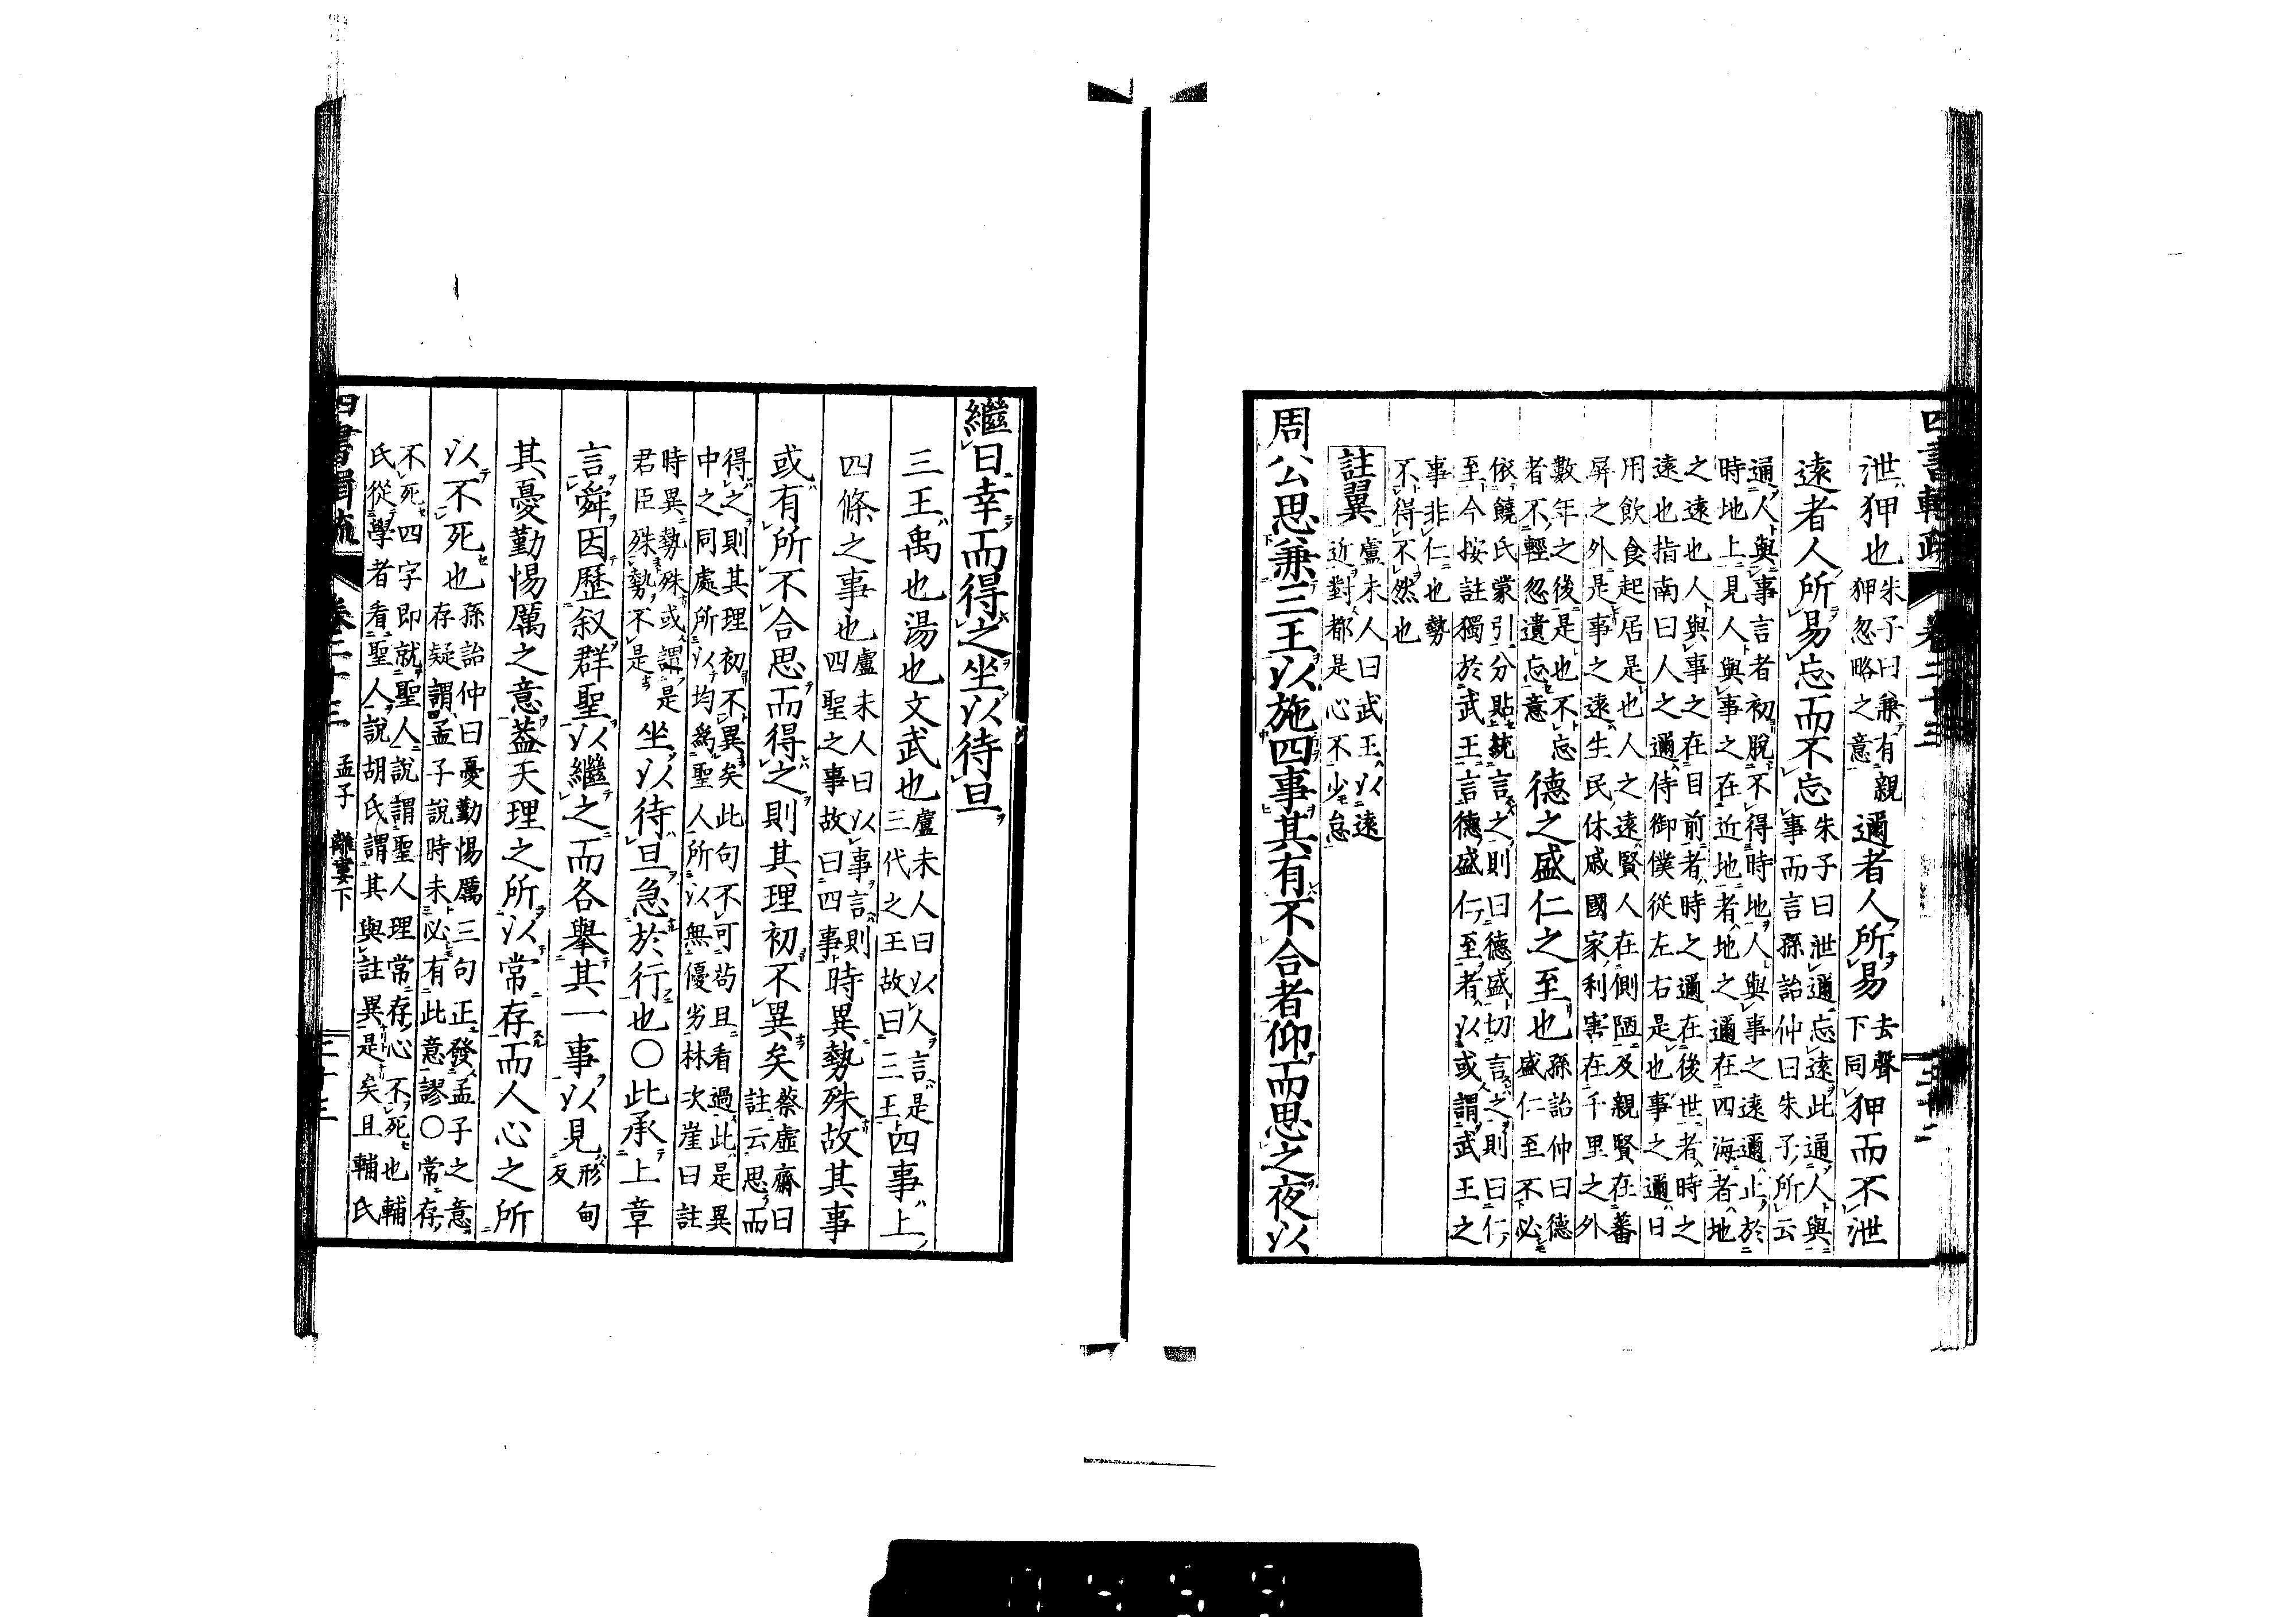 四書輯疏 卷二十三 三十二
泄狎也 朱子曰兼有親
狎忽略之意 邇者人所易 去聲
下同 狎而不泄
遠者人所易忘而不忘 朱子曰泄邇忘遠此通人與
事而言孫詒仲曰朱子所云
通人與事言者初脫不得時地人與事之遠邇止於
時地上見人與事之在近地者地之邇在四海者地
之遠也人與事之在目前者時之邇在後世者時之
遠也指南曰人之邇侍御僕從左右是也事之邇日
用飲食起居是也人之遠賢人在側陋及親賢在蕃
屏之外是事之遠生民休戚國家利害在千里之外
數年之後是也不忘
者不輕忽遺忘意 德之盛仁之至也 孫詒仲曰德
盛仁至不必
依饒氏蒙引分貼統言之則曰德盛切言之則曰仁
至今按註獨於武王言德盛仁至者以或謂武王之
事非仁也勢
不得不然也
註翼 盧未人曰武王以遠
近對都是心不少怠
周公思兼三王以施四事其有不合者仰而思之夜以
繼日幸而得之坐以待旦
三王禹也湯也文武也 盧未人曰以人言是
三代之王故曰三王 四事上
四條之事也 盧未人曰以事言則
四聖之事故曰四事 時異勢殊故其事
或有所不合思而得之則其理初不異矣 蔡虛齋曰
註云思而
得之則其理初不異矣此句不可苟且看過此是異
中之同處所以均爲聖人所以無優劣林次崖曰註
時異勢殊或謂是
君臣殊勢不是 坐以待旦急於行也○此承上章
言舜因歷叙群聖以繼之而各舉其一事以見 形甸
反
其憂勤惕厲之意葢天理之所以常存而人心之所
以不死也 孫詒仲曰憂勤惕厲三句正發孟子之意
存疑謂孟子說時未必有此意謬○常存
不死四字即就聖人說謂聖人理常存心不死也輔
氏從學者看聖人說胡氏謂其與註異是矣且輔氏
四書輯疏 卷二十三 孟子 離婁下 三十三